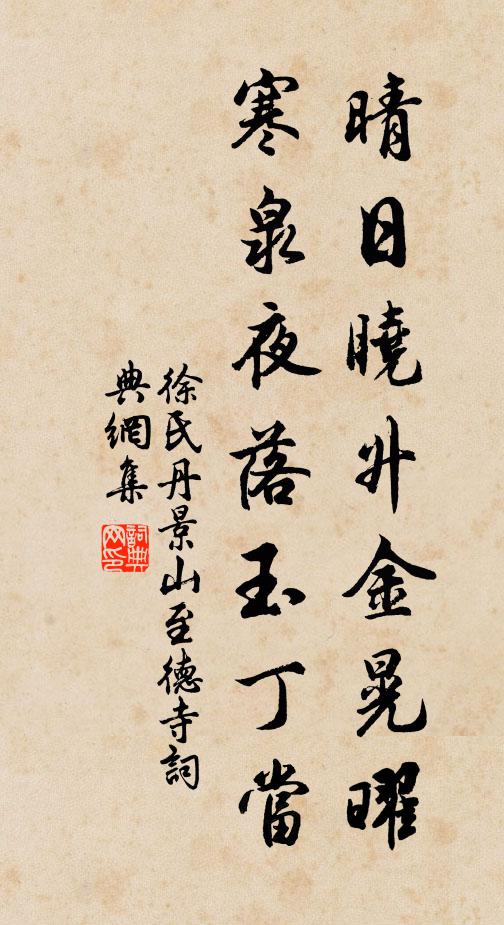 晴日曉升金晃曜
寒泉夜落玉丁當
徐氏丹景山至德寺詞
典網集
詞典
网印